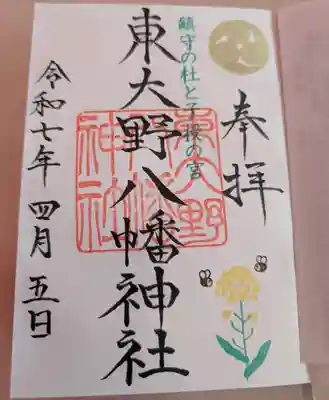 奉拝
鎮守の杜と子授の宮
東大野八幡神社
東大野八幡神社
令和七年 四月 五日